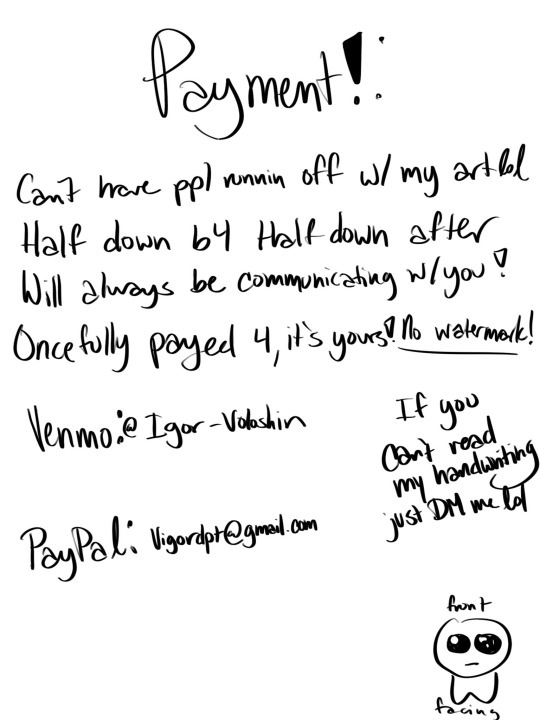 Payment!
Can't have ppl runnin off w/ my art lol
Half down b4 Half down after
Will always be communicating w/you!
Once fully payed 4, it's yours! No watermark!
Venmo:@Igor-Voloshin
PayPal: Vigordpt@gmail.com
If you
Can't read
my handwriting
just DM me lol
front
facing